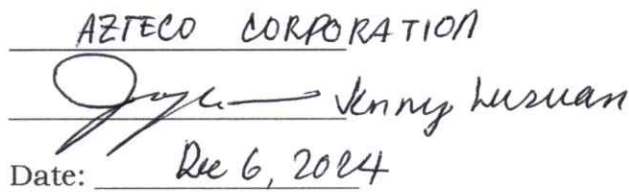 AZTECO CORPORATION
Jenny Lusuan
Date: Dec 6, 2024